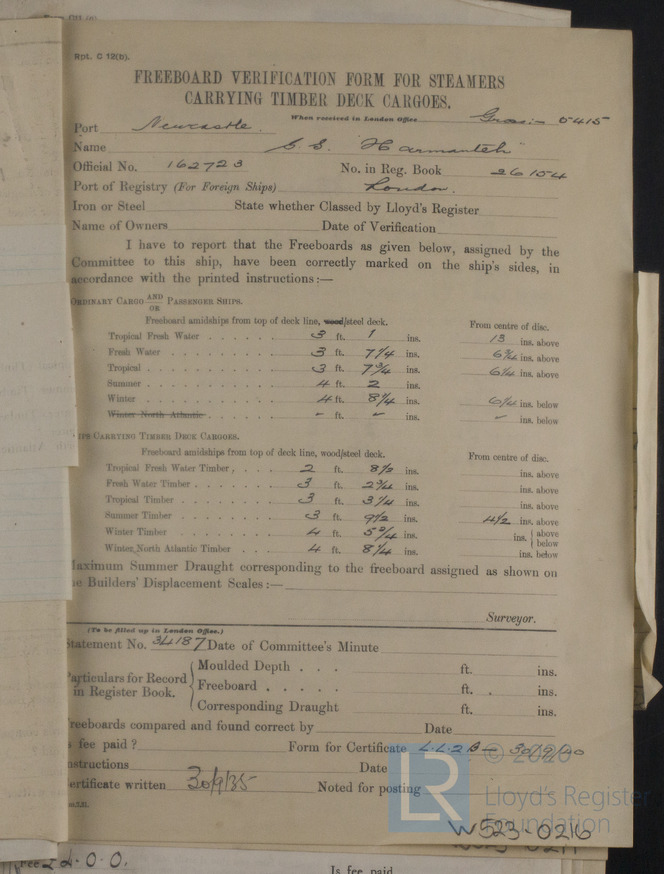 Rpt. C 12(b).
FREEBOARD VERIFICATION FORM FOR STEAMERS
CARRYING TIMBER DECK CARGOES.
When received in London Office Gross:- 5415
Port Newcastle.
Name S.S. "Harmanteh"
Official No. 162723 No. in Reg. Book 26154
Port of Registry (For Foreign Ships) London.
Iron or Steel State whether Classed by Lloyd's Register
Name of Owners Date of Verification
I have to report that the Freeboards as given below, assigned by the
Committee to this ship, have been correctly marked on the ship's sides, in
accordance with the printed instructions :—
ORDINARY CARGO AND OR PASSENGER SHIPS.
Freeboard amidships from top of deck line, wood/steel deck. From centre of disc.
Tropical Fresh Water 3 ft. 1 ins. 13 ins. above
Fresh Water 3 ft. 7 1/4 ins. 6 3/4 ins. above
Tropical 3 ft. 7 3/4 ins. 6 1/4 ins. above
Summer 4 ft. 2 ins.
Winter 4 ft. 8 1/4 ins. 6 1/4 ins. below
Winter North Atlantic - ft. - ins. - ins. below
IPS CARRYING TIMBER DECK CARGOES.
Freeboard amidships from top of deck line, wood/steel deck. From centre of disc.
Tropical Fresh Water Timber 2 ft. 8 1/2 ins. ins. above
Fresh Water Timber 3 ft. 2 3/4 ins. ins. above
Tropical Timber 3 ft. 3 1/4 ins. ins. above
Summer Timber 3 ft. 9 1/2 ins. 4 1/2 ins. above
Winter Timber 4 ft. 5 3/4 ins. ins. above below
Winter North Atlantic Timber 4 ft. 8 1/4 ins. ins. below
Maximum Summer Draught corresponding to the freeboard assigned as shown on
he Builders' Displacement Scales :—
Surveyor.
(To be filled up in London Office.)
Statement No. 34187 Date of Committee's Minute
Particulars for Record in Register Book.
Moulded Depth . . . ft. ins.
Freeboard . . . . . ft. ins.
Corresponding Draught ft. ins.
Freeboards compared and found correct by Date
s fee paid ? Form for Certificate L.L.2B- 30/9/40
nstructions Date
ertificate written 30/9/35 Noted for posting
© 2020
LR
Lloyd's Register
Foundation
W523-0216
2.0.0.
Is fee paid